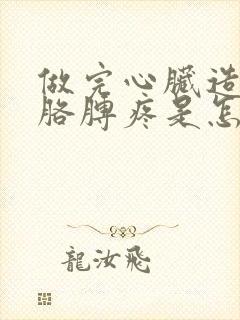 做完心臟造
胳膊疼是怎
龍汝飛